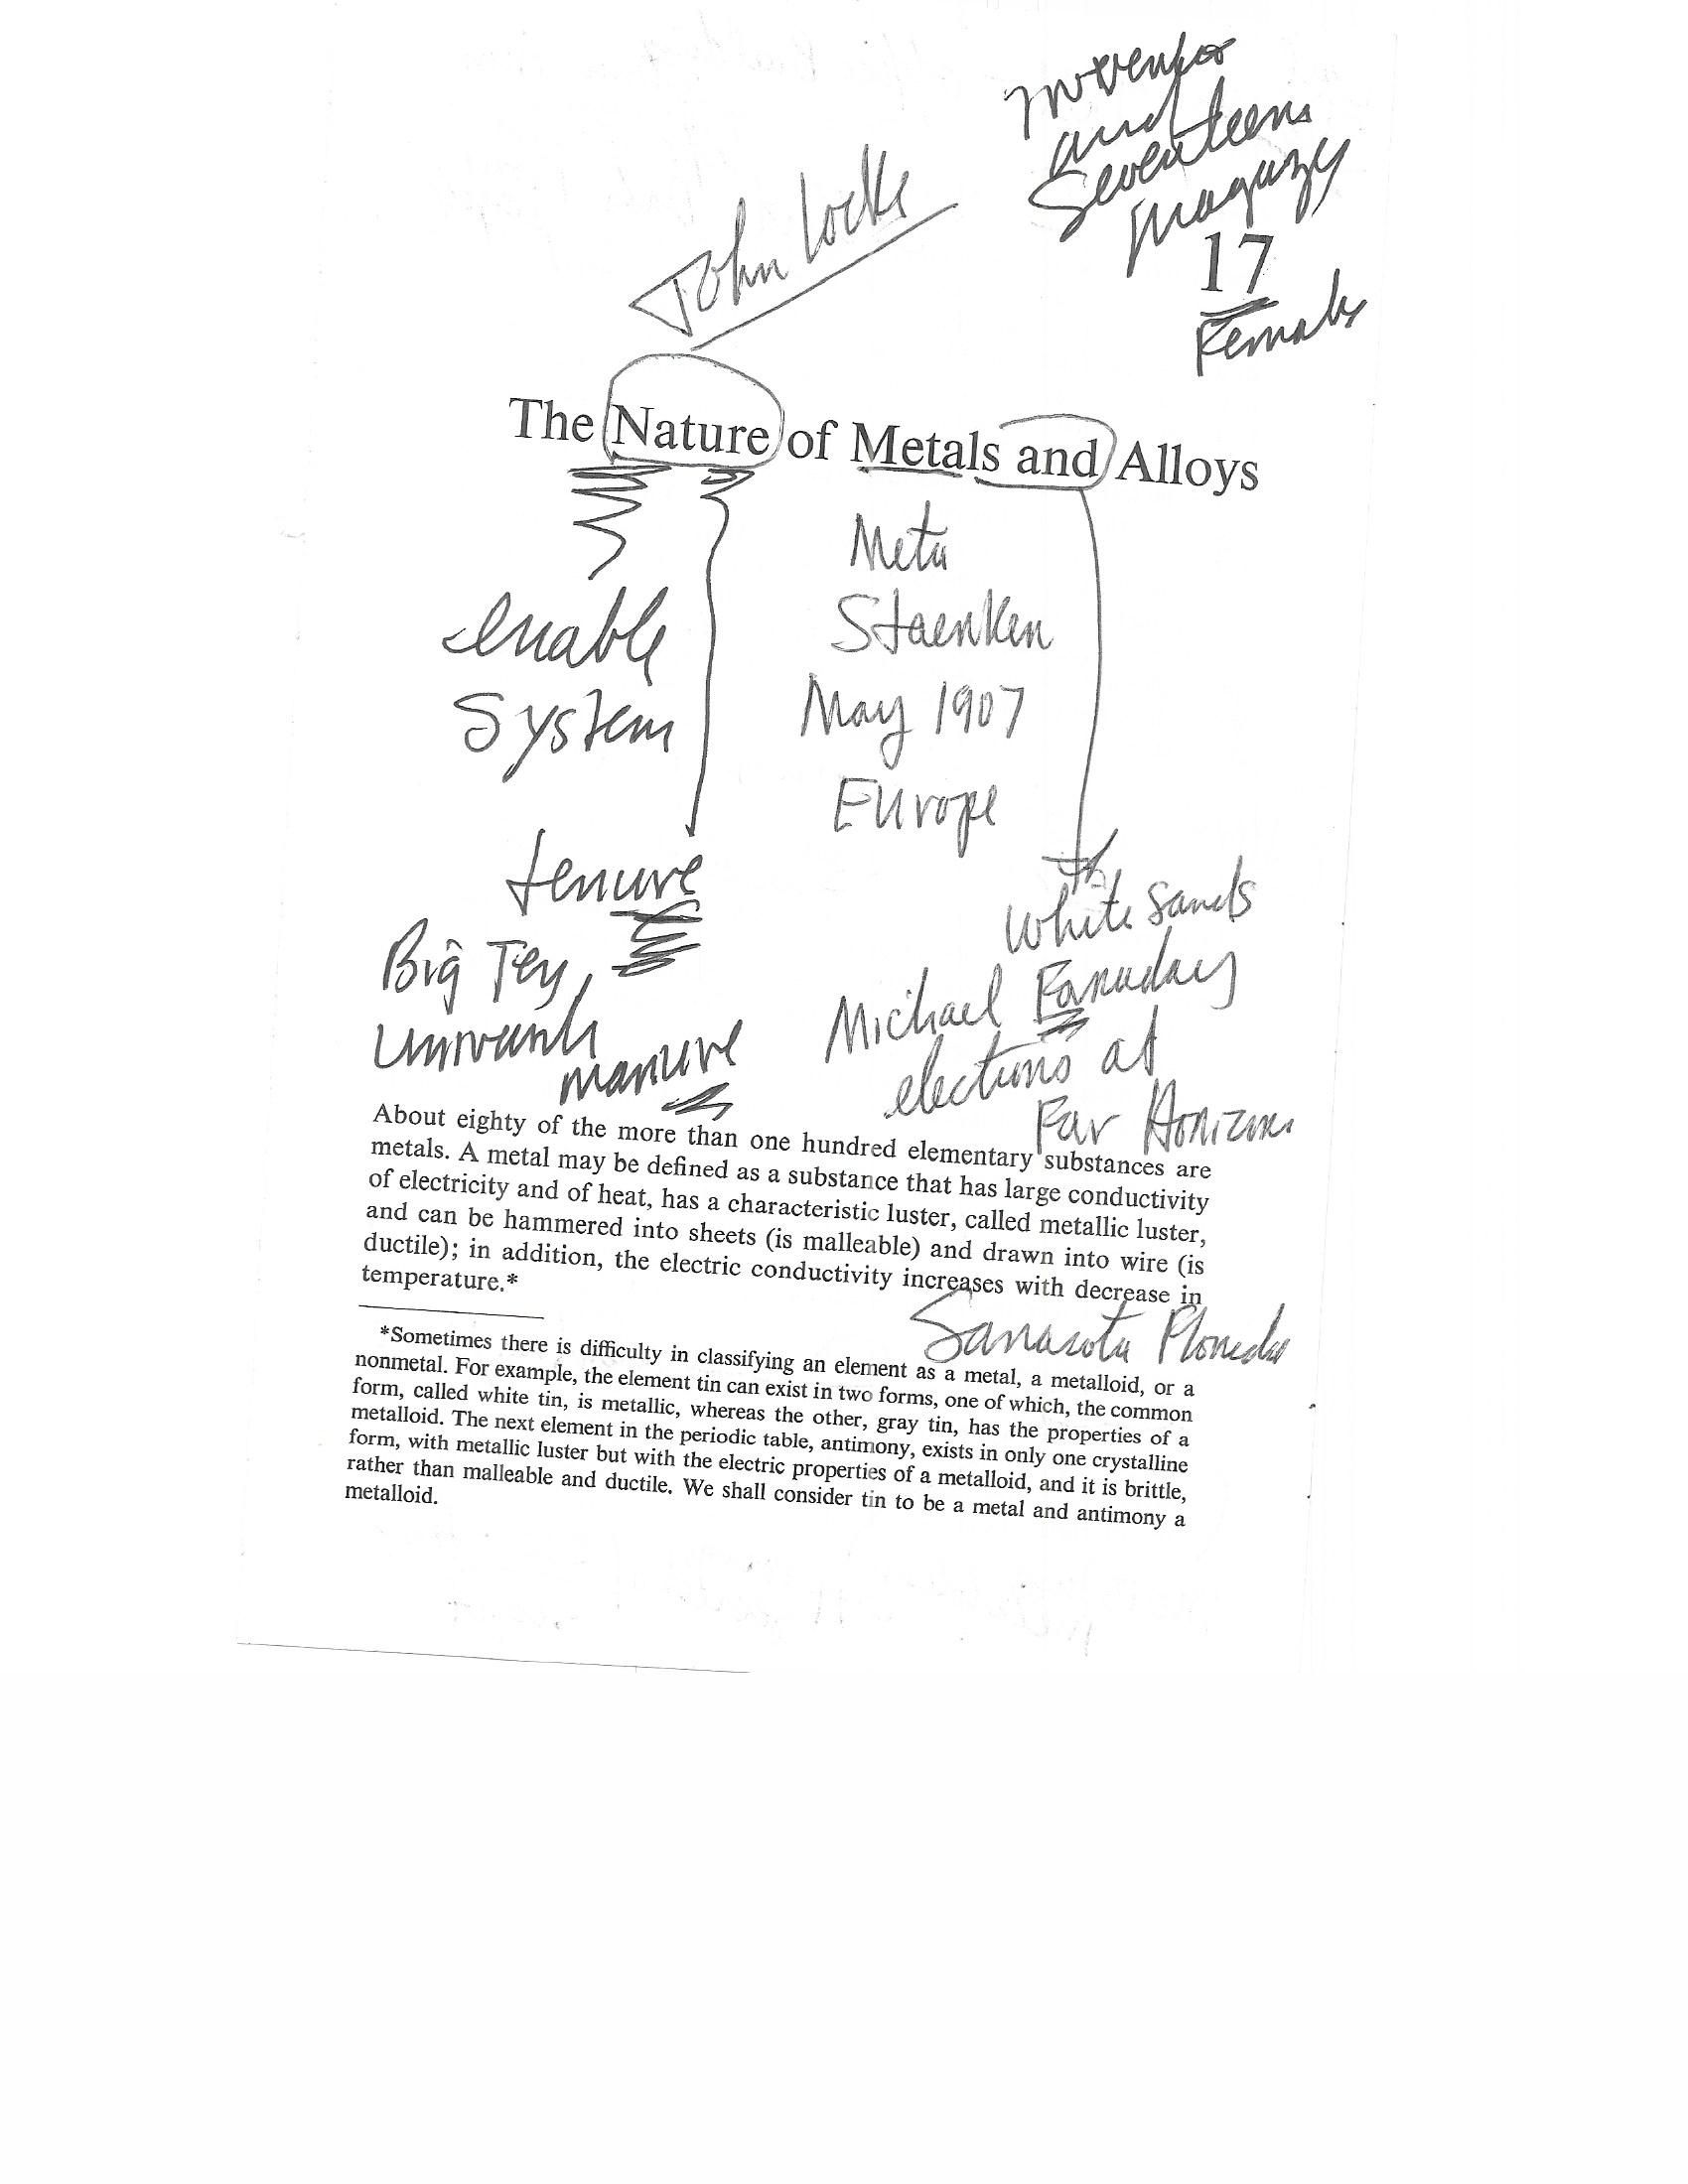 and
Seventeen
17
Female
John Locke
The Nature of Metals and Alloys
Meta
Staenken
May 1907
Europe
enable
System
tenure
Big Ten
manure
White Sands
Michael Faraday
elections at
Far Horizons
About eighty of the more than one hundred elementary substances are
metals. A metal may be defined as a substance that has large conductivity
of electricity and of heat, has a characteristic luster, called metallic luster,
and can be hammered into sheets (is malleable) and drawn into wire (is
ductile); in addition, the electric conductivity increases with decrease in
temperature.*
Sarasota Florida
*Sometimes there is difficulty in classifying an element as a metal, a metalloid, or a
nonmetal. For example, the element tin can exist in two forms, one of which, the common
form, called white tin, is metallic, whereas the other, gray tin, has the properties of a
metalloid. The next element in the periodic table, antimony, exists in only one crystalline
form, with metallic luster but with the electric properties of a metalloid, and it is brittle,
rather than malleable and ductile. We shall consider tin to be a metal and antimony a
metalloid.